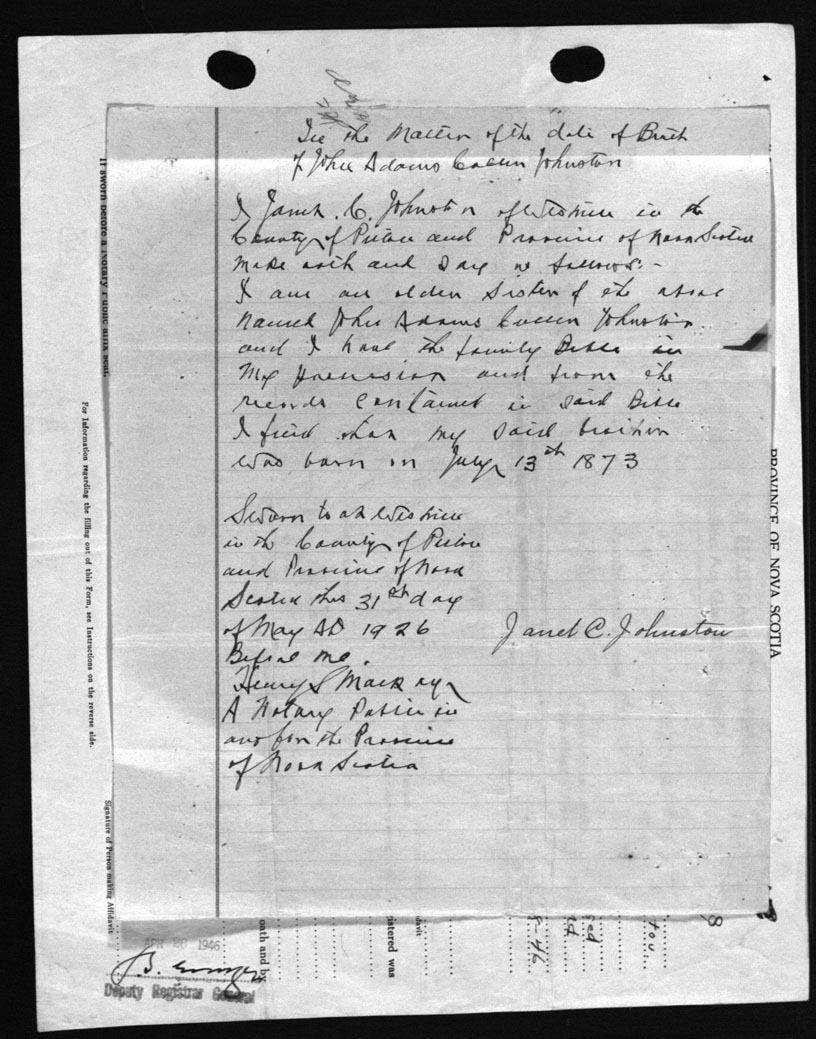 In the Matter of the date of Birth
of John Adams Johnston
I Janet C. Johnston of Westville in the
County of Pictou and Province of Nova Scotia
make oath and say as follows:-
I am an older Sister of the above
named John Adams Johnston
and I have the family Bible in
My possession and from the
records contained in said Bible
I find that my said brother
was born on July 13th 1873
Sworn to at Westville
in the County of Pictou
and Province of Nova
Scotia this 31st day
of May AD 1926
Before me.
Henry S Mackay
A Notary Public in
and for the Province
of Nova Scotia
Janet C. Johnston
If sworn before a Notary Public affix seal.
For Information regarding the filling out of this Form, see Instructions on the reverse side.
Signature of Person making Affidavit
PROVINCE OF NOVA SCOTIA
oath and by
istered was
davit
8-46
APR 20 1946
Deputy Registrar General